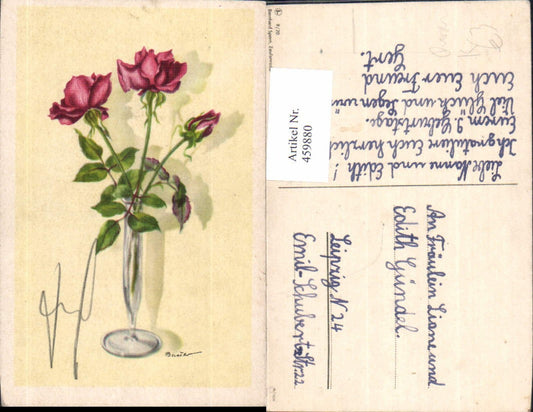 Artikel Nr.
459880
Liebe Hanne und Edith!
Ich gratuliere Euch herzlich
Eurem 9. Geburtstage.
Viel Glück und Segen
Euch Euer Freund
Gert.
An Fräulein Liane und
Edith Gündel.
Leipzig N 24
Emil-Schubert-Str. 22